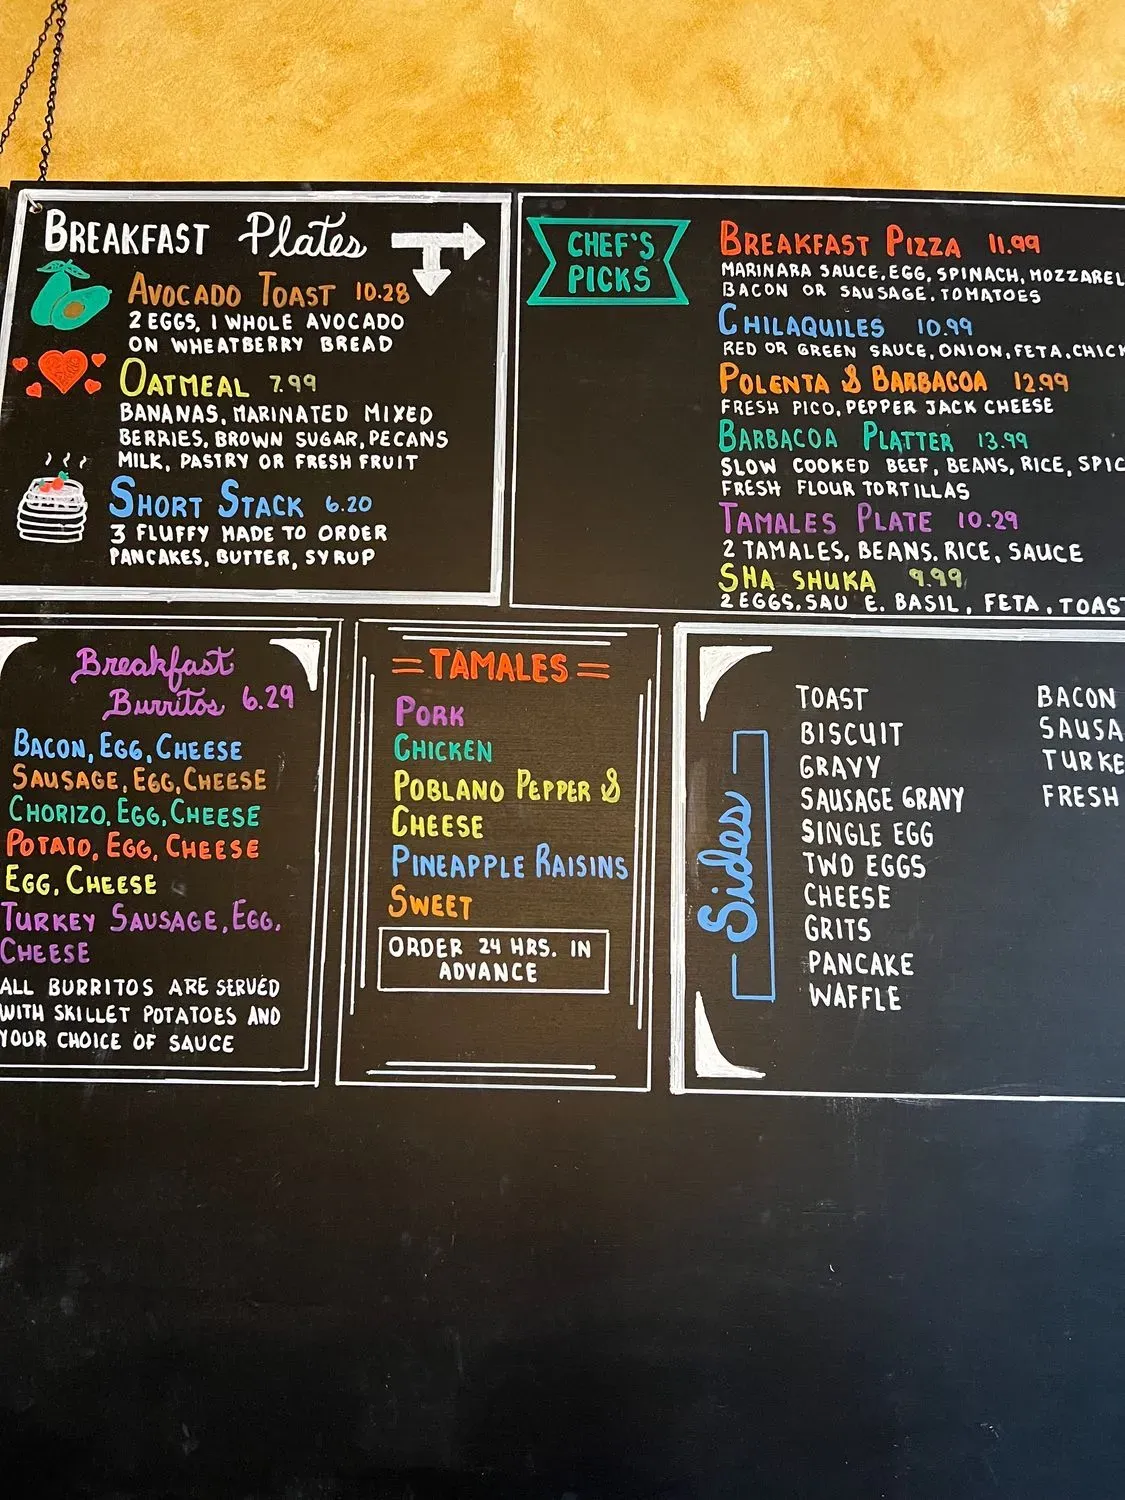 BREAKFAST Plates
AVOCADO TOAST 10.28
2 EGGS, 1 WHOLE AVOCADO
ON WHEATBERRY BREAD
OATMEAL 7.99
BANANAS, MARINATED MIXED
BERRIES, BROWN SUGAR, PECANS
MILK, PASTRY OR FRESH FRUIT
SHORT STACK 6.20
3 FLUFFY MADE TO ORDER
PANCAKES, BUTTER, SYRUP
CHEF'S
PICKS
BREAKFAST PIZZA 11.99
MARINARA SAUCE, EGG, SPINACH, MOZZAREL
BACON OR SAUSAGE, TOMATOES
CHILAQUILES 10.99
RED OR GREEN SAUCE, ONION, FETA, CHICK
POLENTA & BARBACOA 12.99
FRESH PICO, PEPPER JACK CHEESE
BARBACOA PLATTER 13.99
SLOW COOKED BEEF, BEANS, RICE, SPIC
FRESH FLOUR TORTILLAS
TAMALES PLATE 10.29
2 TAMALES, BEANS, RICE, SAUCE
SHA SHUKA 9.99
2 EGGS, SAU E, BASIL, FETA, TOAST
Breakfast
Burritos 6.29
BACON, EGG, CHEESE
SAUSAGE, EGG, CHEESE
CHORIZO, EGG, CHEESE
POTATO, EGG, CHEESE
EGG, CHEESE
TURKEY SAUSAGE, EGG,
CHEESE
ALL BURRITOS ARE SERVED
WITH SKILLET POTATOES AND
YOUR CHOICE OF SAUCE
= TAMALES =
PORK
CHICKEN
POBLANO PEPPER &
CHEESE
PINEAPPLE RAISINS
SWEET
ORDER 24 HRS. IN
ADVANCE
Sides
TOAST
BISCUIT
GRAVY
SAUSAGE GRAVY
SINGLE EGG
TWO EGGS
CHEESE
GRITS
PANCAKE
WAFFLE
BACON
SAUSA
TURKE
FRESH